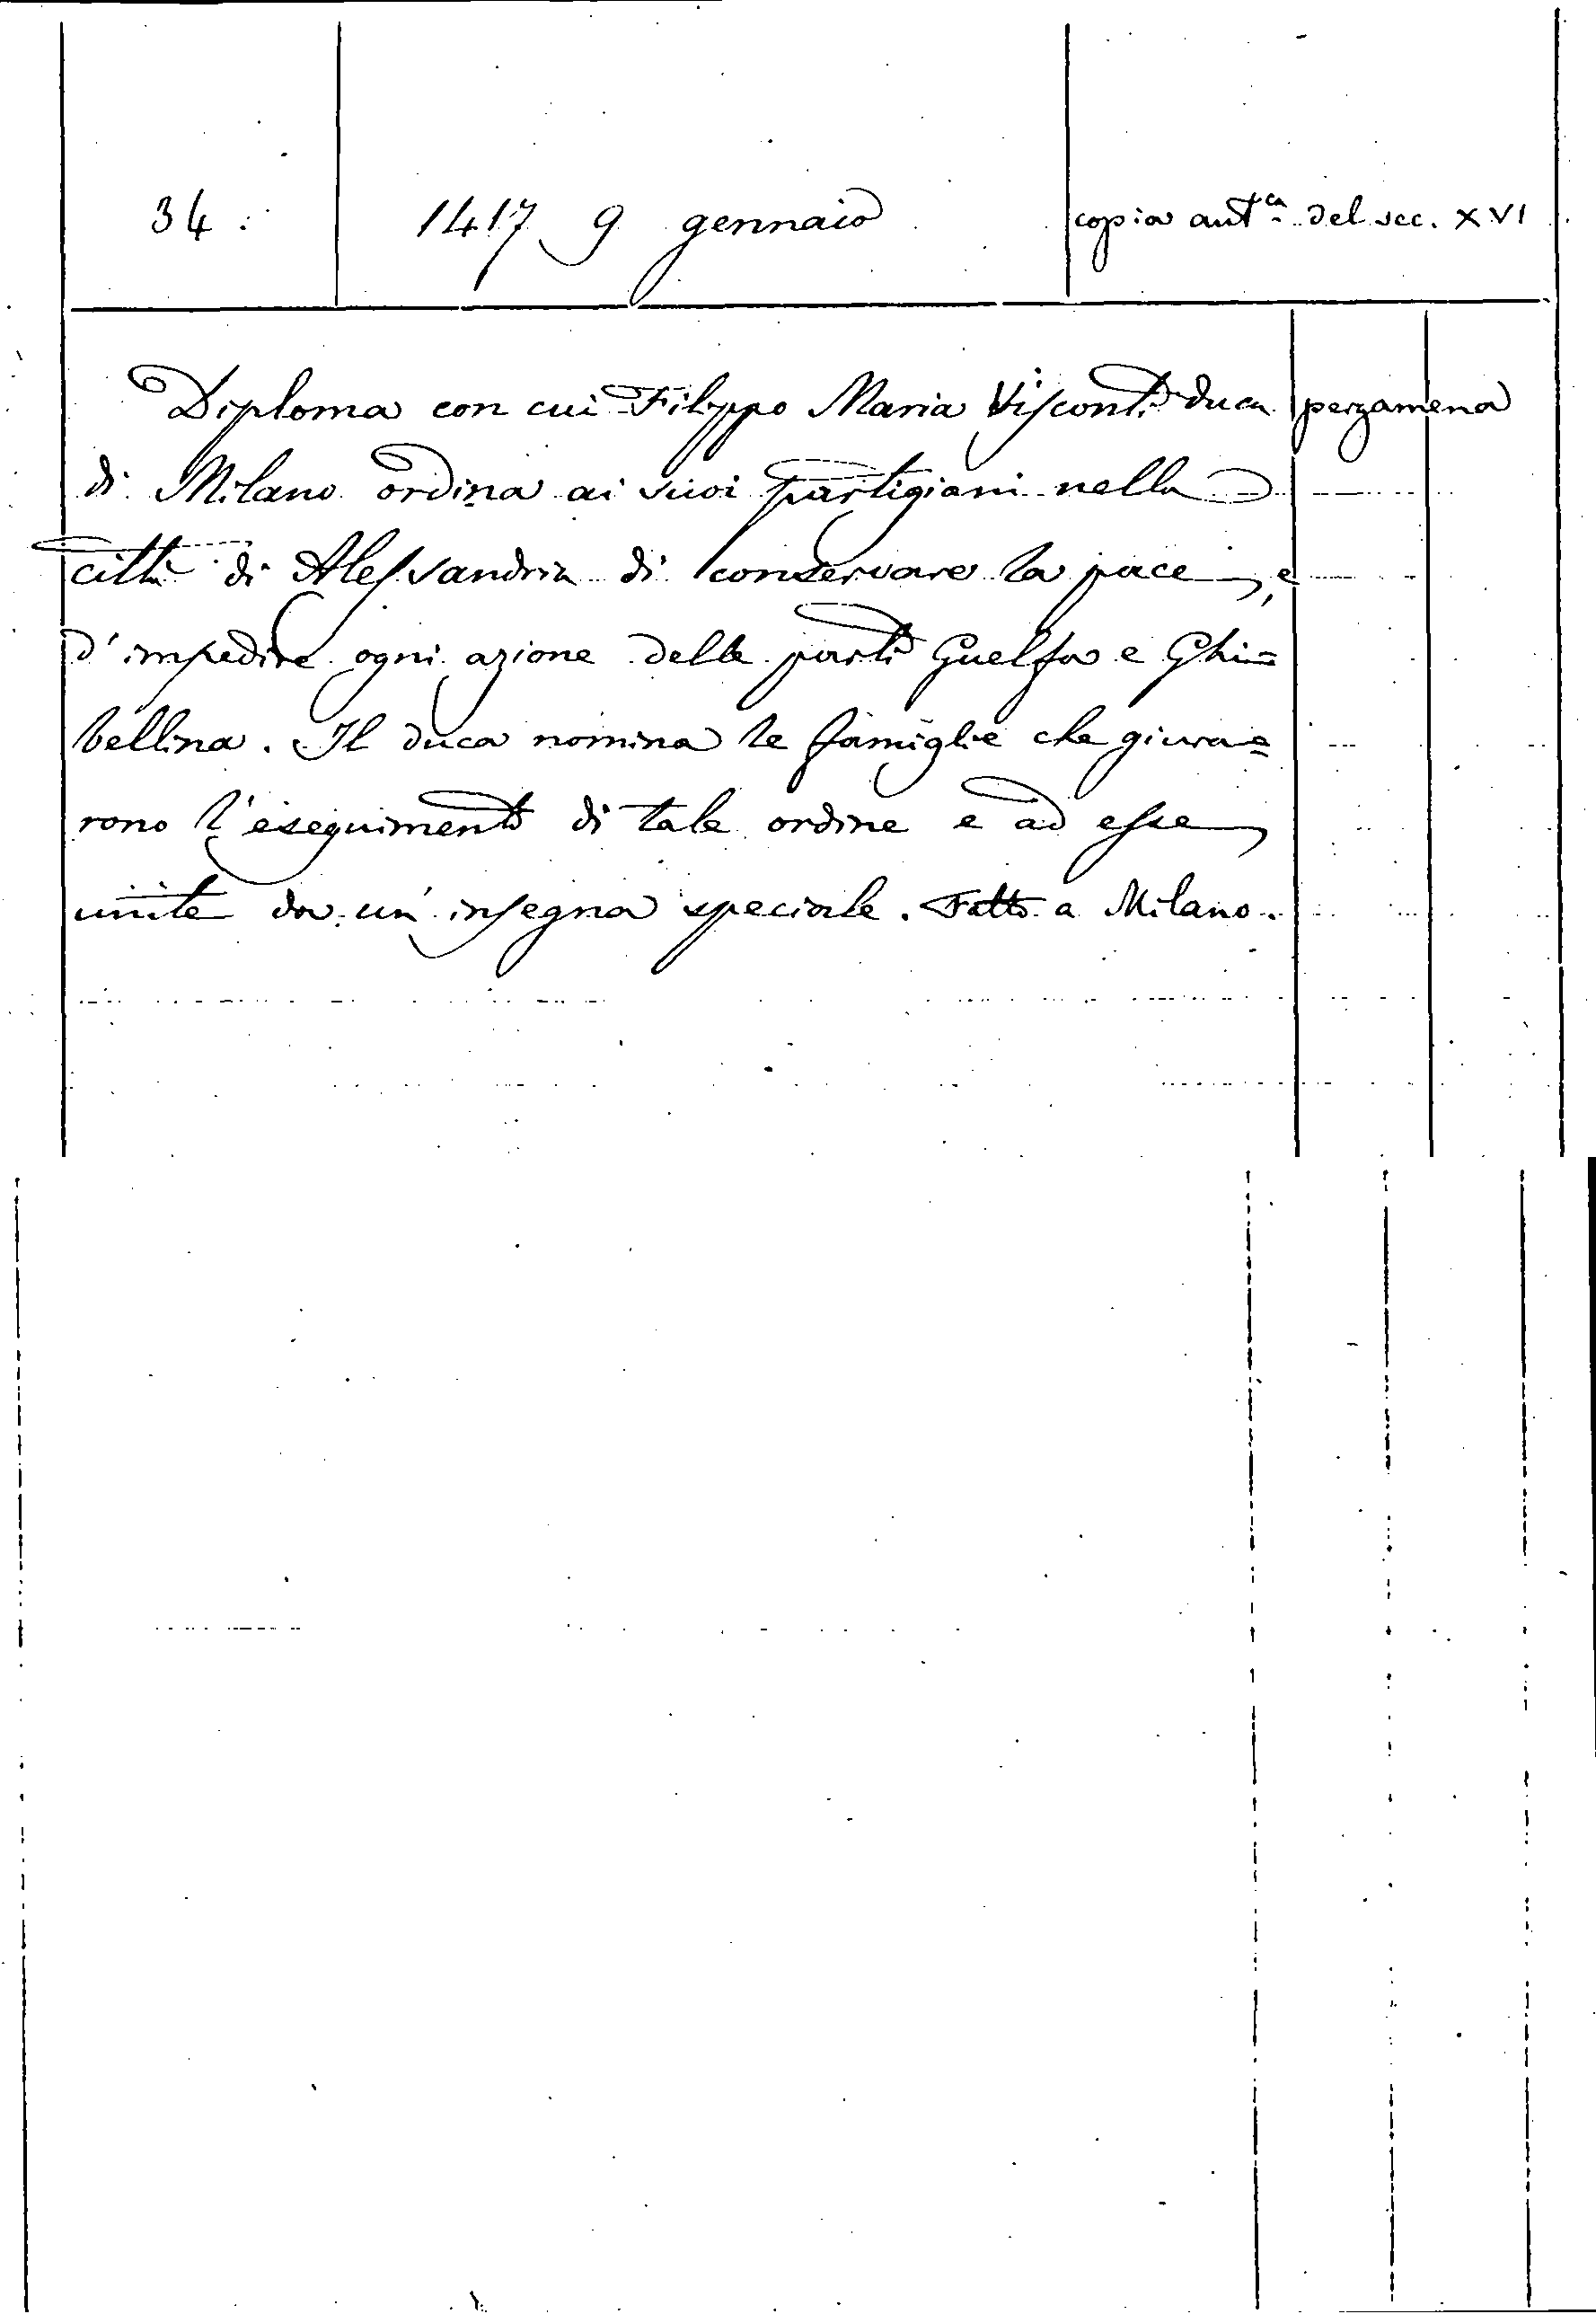 34. 1417 9 gennaio copia aut.ca del sec. XVI
Diploma con cui Filippo Maria Visconti duca pergamena
di Milano ordina ai suoi partigiani nella
città di Alessandria di conservare la pace, e
d'impedire ogni azione delle parti Guelfa e Ghi=
bellina. Il duca nomina le famiglie che giura=
rono l'eseguimento di tale ordine e ad esse
unite da un'insegna speciale. Fatto a Milano.